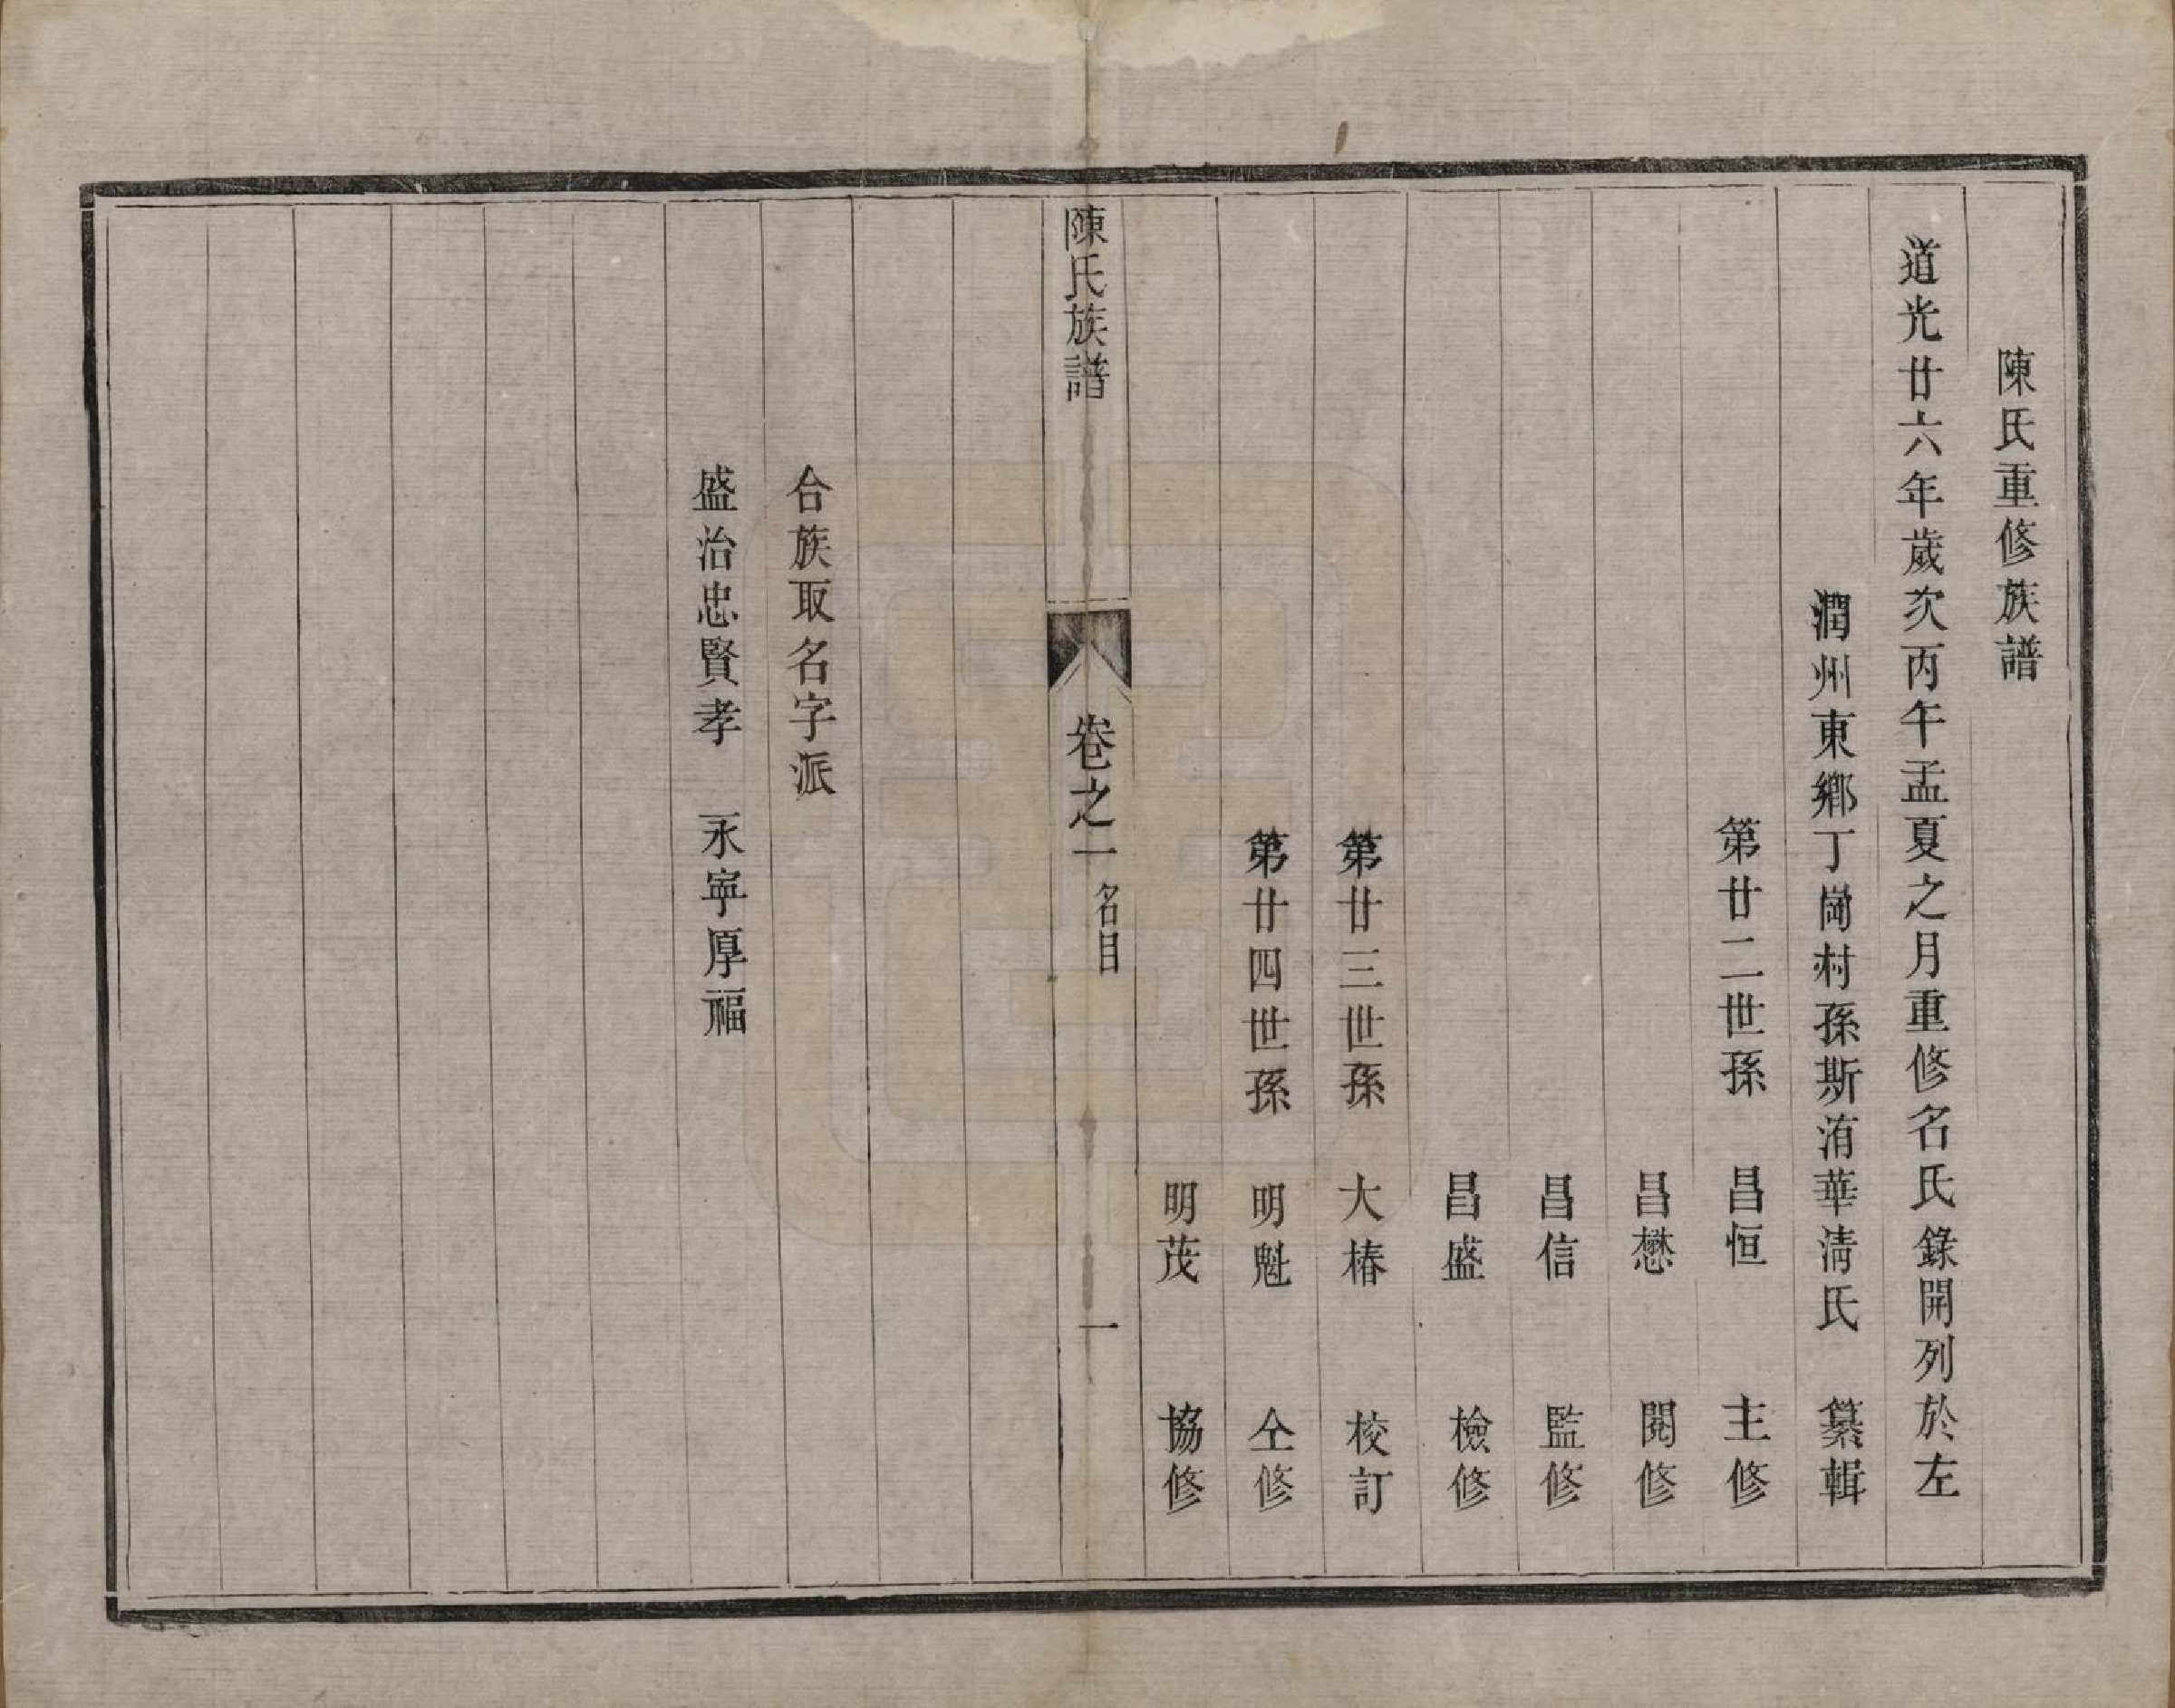 陳氏重修族譜
道光廿六年歲次丙午孟夏之月重修名氏錄開列於左
潤州東鄉丁崗村孫斯洧華清氏　纂輯
第廿二世孫　昌恒　主修
昌懋　閱修
昌信　監修
昌盛　檢修
第廿三世孫　大椿　校訂
第廿四世孫　明魁　仝修
明茂　協修
陳氏族譜　卷之一　名目　一
合族取名字派
盛治忠賢孝　永寧厚福